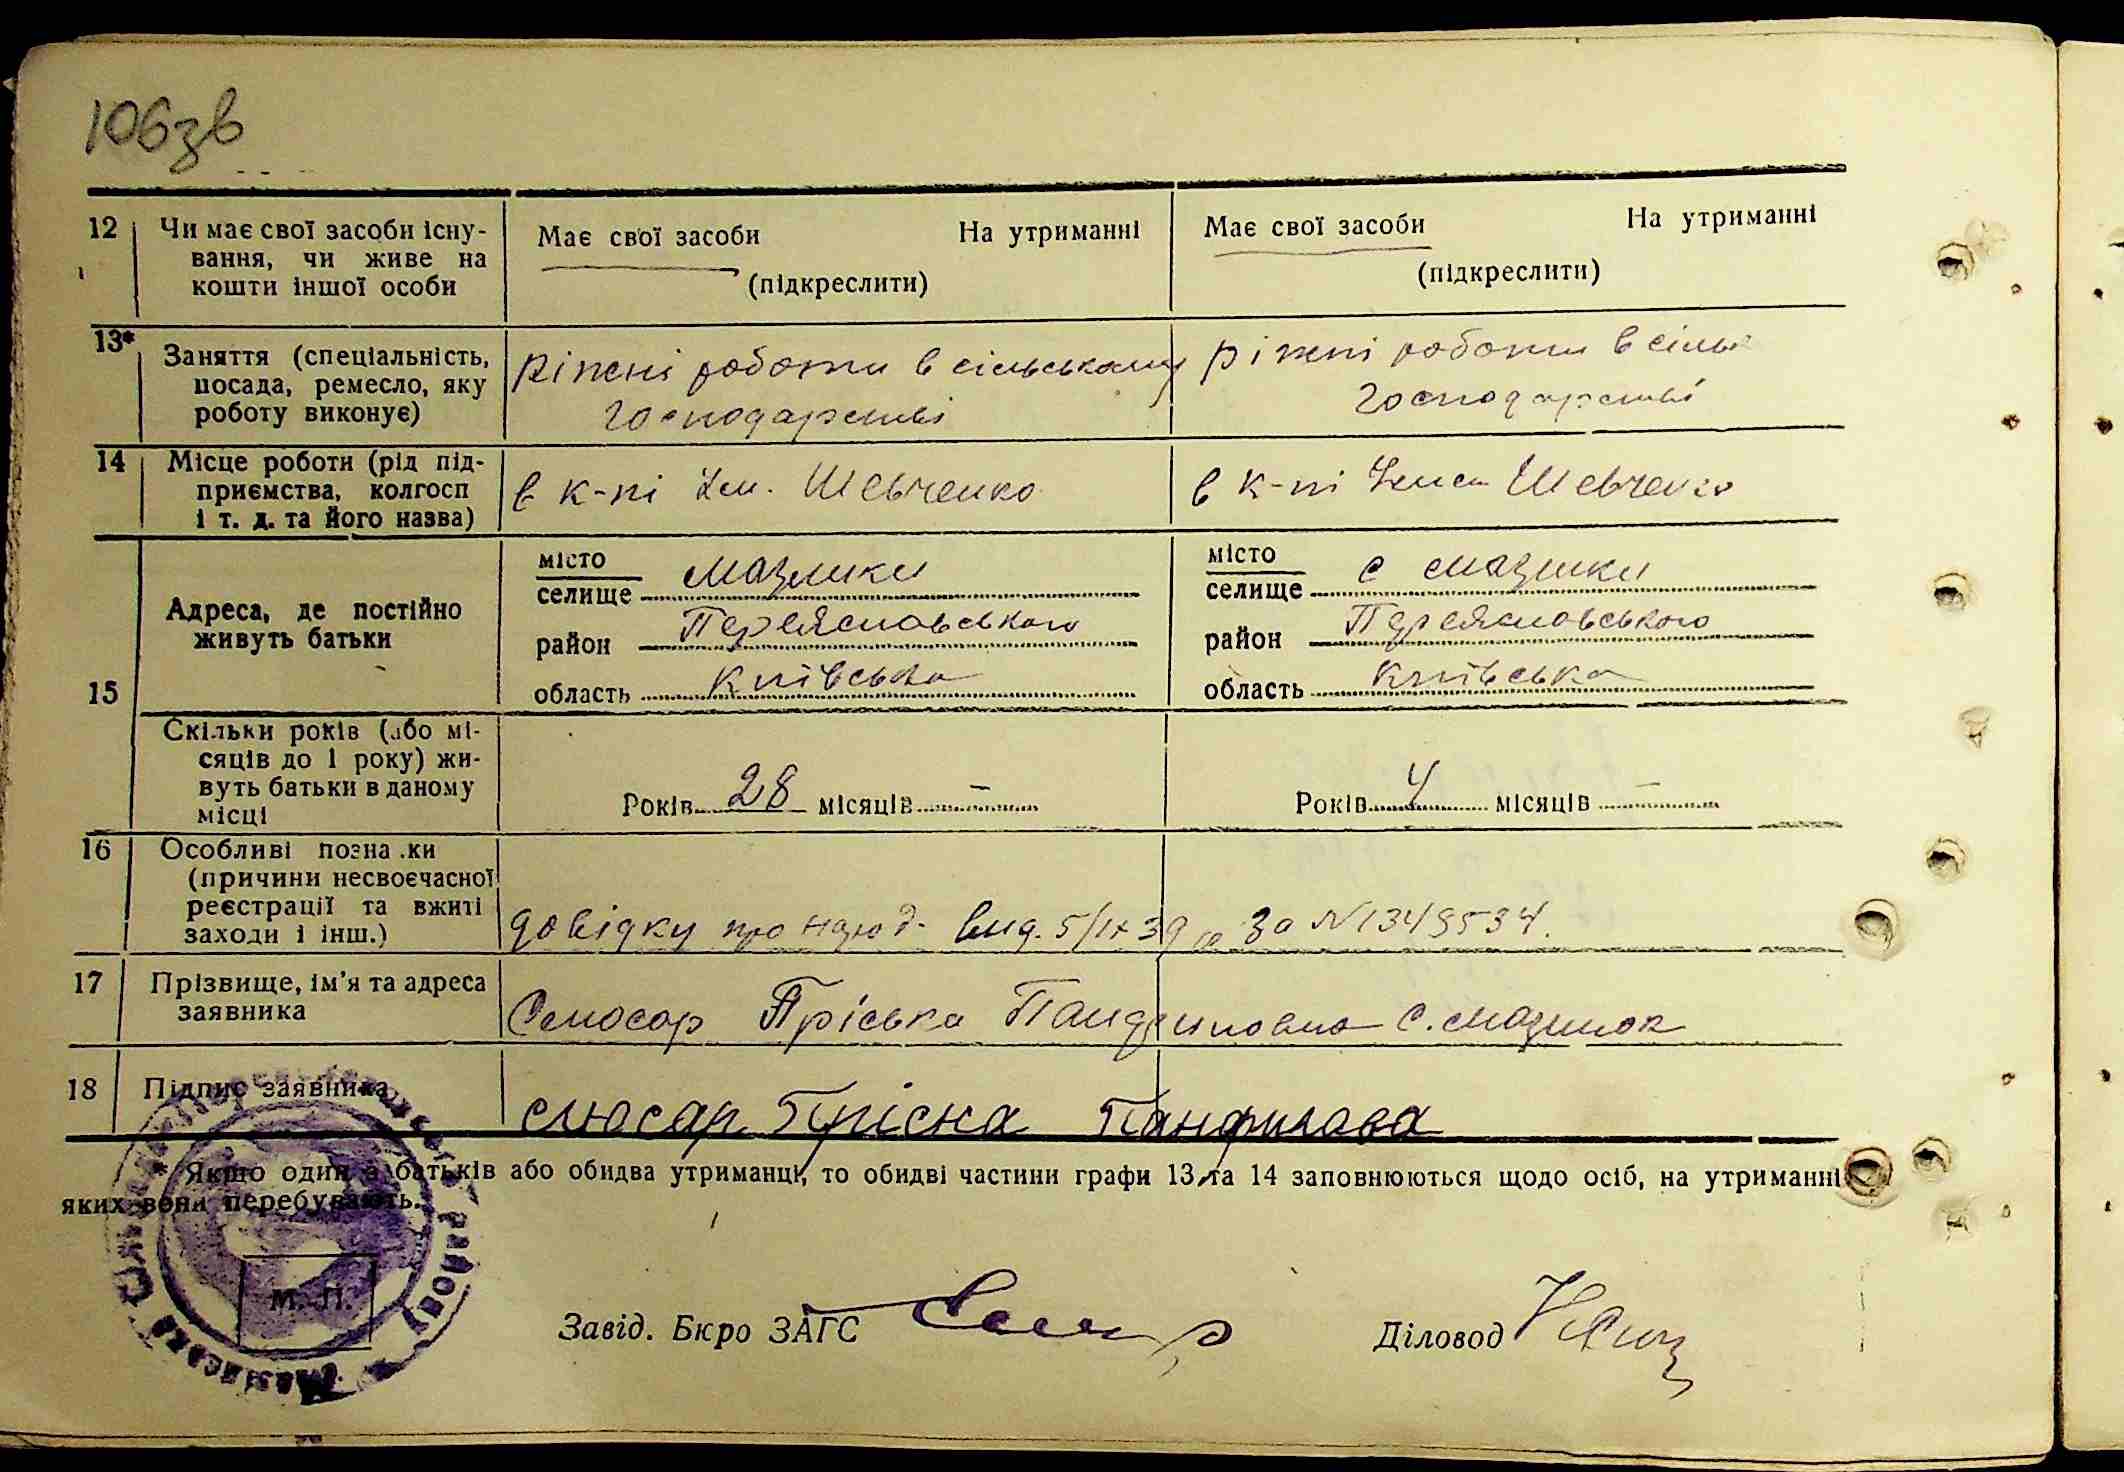 106зв
12 Чи має свої засоби існу-
вання, чи живе на
кошти іншої особи
Має свої засоби На утриманні
(підкреслити)
Має свої засоби На утриманні
(підкреслити)
13* Заняття (спеціальність,
посада, ремесло, яку
роботу виконує)
Ріжні роботи в сільському
господарстві
ріжні роботи в сільс
господарстві
14 Місце роботи (рід під-
приємства, колгосп
і т. д. та його назва)
в к-пі Ім. Шевченко
в к-пі Шевченко
15 Адреса, де постійно
живуть батьки
місто
селище Мазинки
район Переяславського
область Київська
місто
селище с Мазинки
район Переяславського
область Київська
Скільки років (або мі-
сяців до 1 року) жи-
вуть батьки в даному
місці
Років 28 місяців –
Років 4 місяців –
16 Особливі познаки
(причини несвоєчасної
реєстрації та вжиті
заходи і інш.)
довідку про народ. вид. 5/IX 39 р за N 1349534.
17 Прізвище, ім'я та адреса
заявника
Слюсар Пріська Панфиловна с. Мазинок
18 Підпис заявника
Слюсар Пріска Панфилова
* Якщо один з батьків або обидва утриманці, то обидві частини графи 13 та 14 заповнюються щодо осіб, на утриманні
яких вони перебувають.
М. П.
Завід. Бюро ЗАГС
Діловод